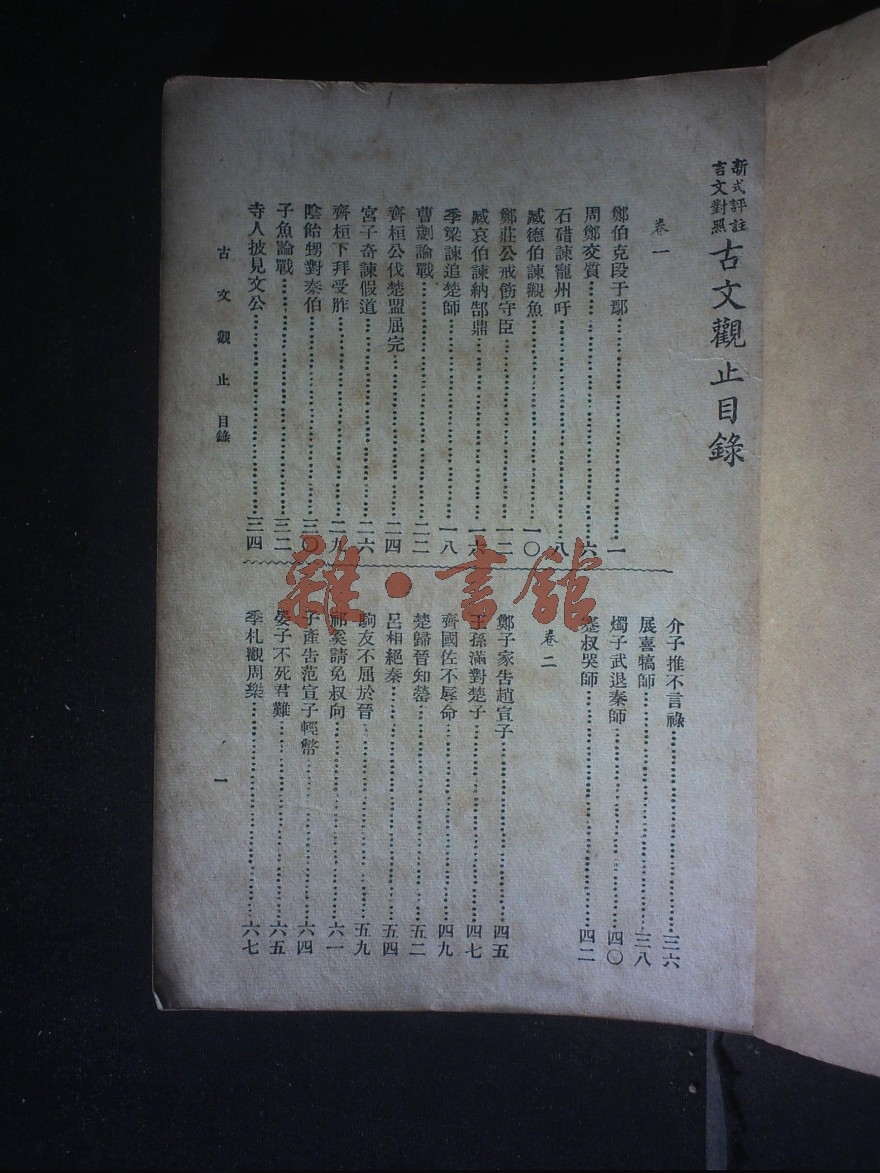 新式評註
言文對照
古文觀止目錄
卷一
鄭伯克段于鄢……一
周鄭交質……六
石碏諫寵州吁……八
臧僖伯諫觀魚……一〇
鄭莊公戒飭守臣……一二
臧哀伯諫納郜鼎……一六
季梁諫追楚師……一八
曹劌論戰……二二
齊桓公伐楚盟屈完……二四
宮子奇諫假道……二六
齊桓下拜受胙……二九
陰飴甥對秦伯……三〇
子魚論戰……三二
寺人披見文公……三四
介子推不言祿……三六
展喜犒師……三八
燭子武退秦師……四〇
蹇叔哭師……四二
卷二
鄭子家告趙宣子……四五
王孫滿對楚子……四七
齊國佐不辱命……四九
楚歸晉知罃……五二
呂相絕秦……五四
駒友不屈於晉……五九
祁奚請免叔向……六一
子產告范宣子輕幣……六四
晏子不死君難……六五
季札觀周樂……六七
古文觀止 目錄
一
雜·書館